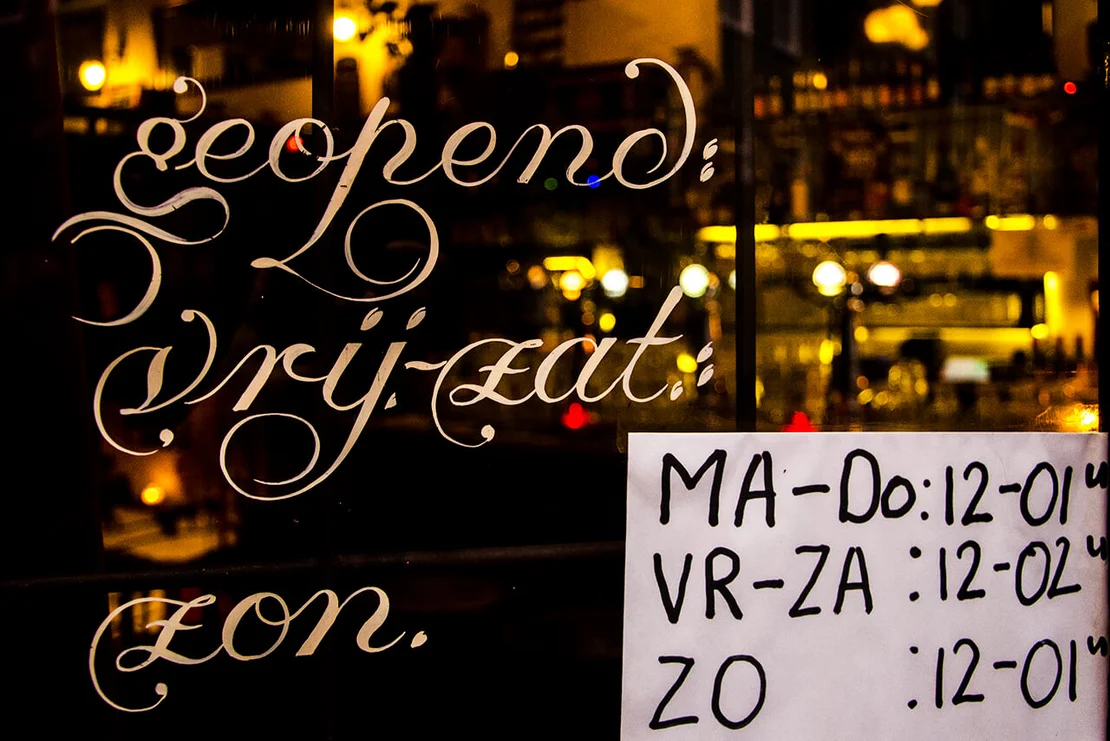 geopend:
vrij.-zat.:
zon.
MA-Do:12-01u
VR-ZA :12-02u
ZO :12-01u